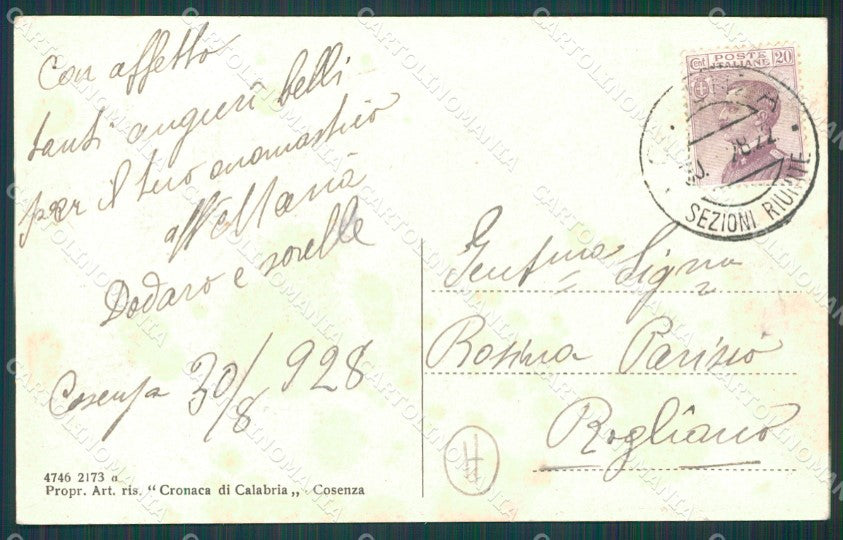 Con affetto
tanti auguri belli
per il tuo onomastico
aff
Maria
Dodaro e sorelle
Cosenza 30/8 928
4746 2173 a
Propr. Art. ris. “Cronaca di Calabria„ - Cosenza
POSTE
ITALIANE
Cent 20
28.22
SEZIONI RIUNITE
Gentma Signa
Rosina Parisio
Rogliano
H
CARTOLINOMANIA